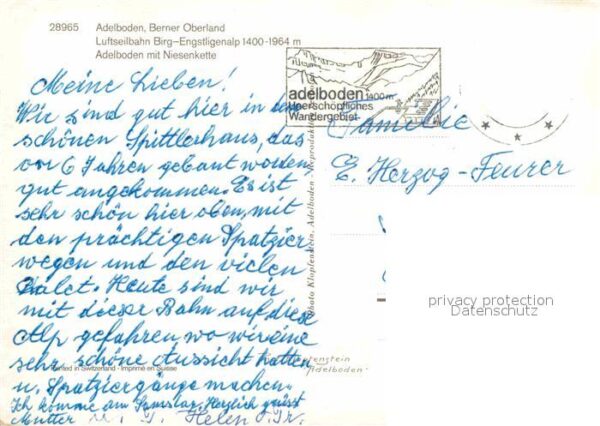 28965 Adelboden, Berner Oberland
Luftseilbahn Birg–Engstligenalp 1400-1964 m
Adelboden mit Niesenkette
Meine Lieben!
Wir sind gut hier in dem
schönen Spittlerhaus, das
vor 6 Jahren gebaut worden,
gut angekommen. Es ist
sehr schön hier oben, mit
den prächtigen Spatzier
wegen und den vielen
Chalet. Heute sind wir
mit dieser Bahn auf diese
Alp gefahren, wo wir eine
sehr schöne Aussicht hatten
u. Spatziergänge machen.
Ich komme am Samstag. Herzlich grüsst
Mutter u. T. Helen
Printed in Switzerland - Imprimé en Suisse
Photo Klopfenstein, Adelboden - Reproduktion
adelboden 1400 m
unerschöpfliches
Wandergebiet
Familie
E. Herzog-Feurer
privacy protection
Datenschutz
Klopfenstein
Adelboden